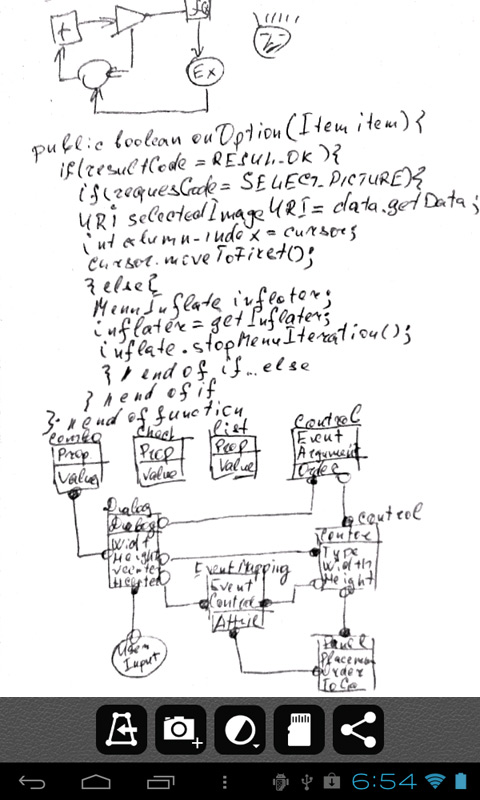 +
Ex
public boolean onOption(Item item){
if(resultCode = RESUL_OK){
if(requesCode= SELECT_PICTURE){
URi selectedImageURI= data.getData;
int column-index= cursor;
cursor.moveToFirst();
}else{
MenuInflate inflater;
inflater=getInflater;
inflate.stopMenuIteration();
} // end of if...else
} // end of if
}; // end of function
Combo
Prop
Value
Check
Prop
Value
List
Prop
Value
Control
Event
Argument
Order
Dialog
Dialog
Width
Height
Vcenter
Hcenter
EventMapping
Event
Control
Attrib
Control
Type
Width
Height
User
Input
Panel
Placemen
Order
6:54